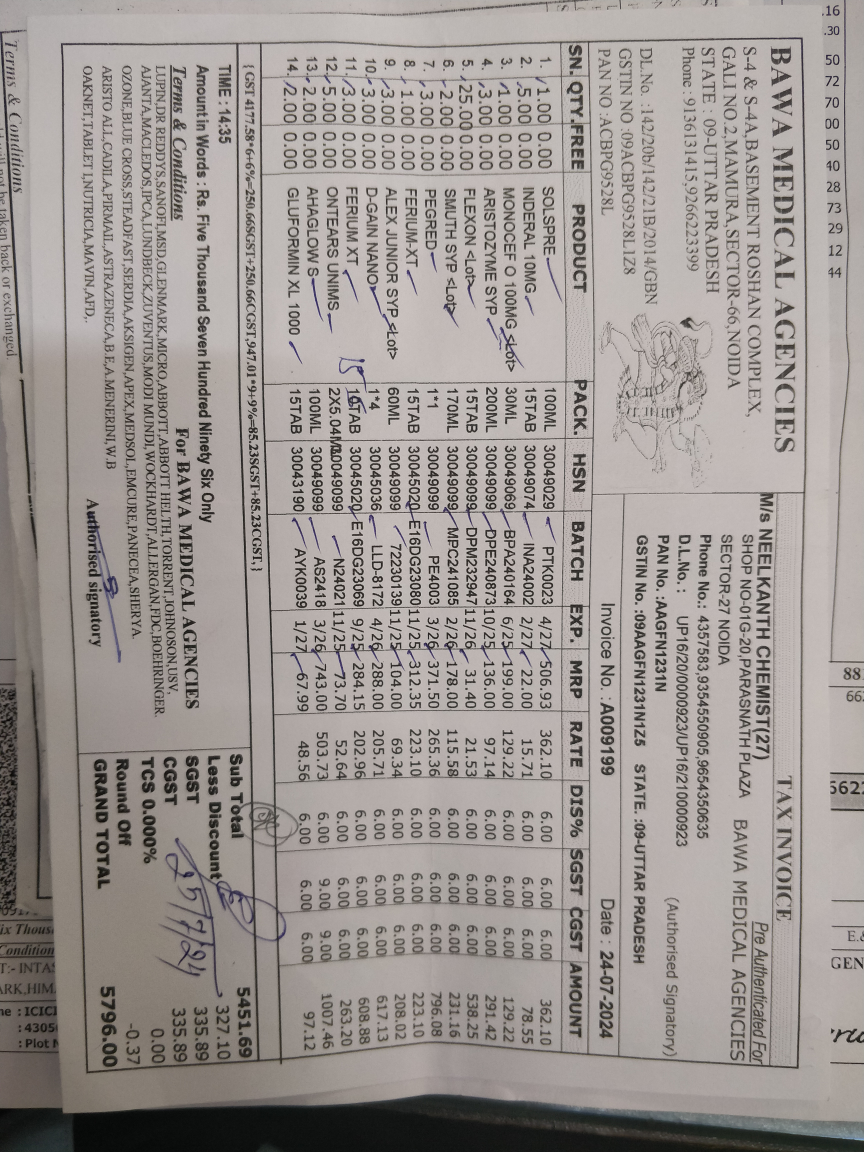 BAWA MEDICAL AGENCIES
S-4 & S-4A,BASEMENT ROSHAN COMPLEX,
GALI NO.2,MAMURA,SECTOR-66,NOIDA
STATE : 09-UTTAR PRADESH
Phone : 9136131415,9266223399
DL.No. :142/20b/142/21B/2014/GBN
GSTIN NO :09ACBPG9528L1Z8
PAN NO :ACBPG9528L
TAX INVOICE
Pre Authenticated For
M/s NEELKANTH CHEMIST(27)
SHOP NO-01G-20,PARASNATH PLAZA BAWA MEDICAL AGENCIES
SECTOR-27 NOIDA
Phone No.: 4357583,9354550905,9654350635
D.L.No. : UP16/20/0000923/UP16/210000923
(Authorised Signatory)
PAN No. :AAGFN1231N
GSTIN No. :09AAGFN1231N1Z5 STATE. :09-UTTAR PRADESH
Invoice No. :A009199 Date : 24-07-2024
SN. QTY.FREE PRODUCT PACK. HSN BATCH EXP. MRP RATE DIS% SGST CGST AMOUNT
1. 1.00 0.00 SOLSPRE 100ML 30049029 PTK0023 4/27 506.93 362.10 6.00 6.00 6.00 362.10
2. 5.00 0.00 INDERAL 10MG 15TAB 30049074 INA24002 2/27 22.00 15.71 6.00 6.00 6.00 78.55
3. 1.00 0.00 MONOCEF O 100MG <Lot> 30ML 30049069 BPA240164 6/25 199.00 129.22 6.00 6.00 6.00 129.22
4. 3.00 0.00 ARISTOZYME SYP 200ML 30049099 DPE240873 10/25 136.00 97.14 6.00 6.00 6.00 291.42
5. 25.00 0.00 FLEXON <Lot> 15TAB 30049099 DPM232947 11/26 31.40 21.53 6.00 6.00 6.00 538.25
6. 2.00 0.00 SMUTH SYP <Lot> 170ML 30049099 MPC241085 2/26 178.00 115.58 6.00 6.00 6.00 231.16
7. 3.00 0.00 PEGRED 1*1 30049099 PE4003 3/26 371.50 265.36 6.00 6.00 6.00 796.08
8. 1.00 0.00 FERIUM-XT 15TAB 30045020 E16DG23080 11/25 312.35 223.10 6.00 6.00 6.00 223.10
9. 3.00 0.00 ALEX JUNIOR SYP <Lot> 60ML 30049099 72230139 11/25 104.00 69.34 6.00 6.00 6.00 208.02
10. 3.00 0.00 D-GAIN NANO 1*4 30045036 LLD-8172 4/26 288.00 205.71 6.00 6.00 6.00 617.13
11. 3.00 0.00 FERIUM XT 15 10TAB 30045020 E16DG23069 9/25 284.15 202.96 6.00 6.00 6.00 608.88
12. 5.00 0.00 ONTEARS UNIMS 2X5.04ML 30049099 N24021 11/25 73.70 52.64 6.00 6.00 6.00 263.20
13. 2.00 0.00 AHAGLOW S 100ML 30049099 AS2418 3/26 743.00 503.73 6.00 9.00 9.00 1007.46
14. 2.00 0.00 GLUFORMIN XL 1000 15TAB 30043190 AYK0039 1/27 67.99 48.56 6.00 6.00 6.00 97.12
{GST 4177.58*6+6%=250.66SGST+250.66CGST,947.01*9+9%=85.23SGST+85.23CGST,}
TIME : 14:35
Amount in Words : Rs. Five Thousand Seven Hundred Ninety Six Only
Terms & Conditions For BAWA MEDICAL AGENCIES
LUPIN,DR REDDYS,SANOFI,MSD,GLENMARK,MICRO,ABBOTT,ABBOTT HELTH,TORRENT,JOHNOSON,USV,
AJANTA,MACLEDOS,IPCA,LUNDBECK,ZUVENTUS,MODI MUNDI,WOCKHARDT,ALLERGAN,FDC,BOEHRINGER
OZONE,BLUE CROSS,STEADFAST,SERDIA,AKSIGEN,APEX,MEDSOL,EMCURE,PANECEA,SHERYA.
ARISTO ALL,CADILA,PIRMAIL,ASTRAZENECA,B.E,A.MENERINI,W.B
OAKNET,TABLET I,NUTRICIA,MAVIN,AFD,.
Authorised signatory
Sub Total 5451.69
Less Discount 327.10
SGST 335.89
CGST 335.89
TCS 0.000% 0.00
Round Off -0.37
GRAND TOTAL 5796.00
25/7/24
Terms & Conditions
taken back or exchanged.
.16
.30
50
72
70
00
50
40
28
73
29
12
44